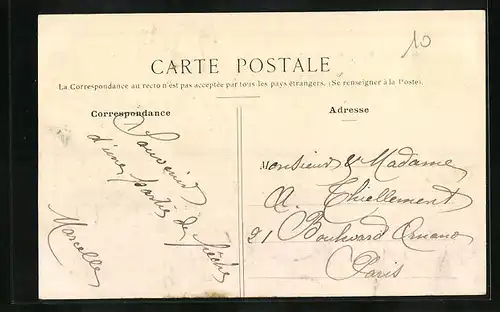 10
CARTE POSTALE
La Correspondance au recto n'est pas acceptée par tous les pays étrangers. (Se renseigner à la Poste).
Correspondance
Souvenir
d'une partie de pêche
Marcelle
Adresse
Monsieur & Madame
A. Thiellement
21 Boulevard Ornano
Paris